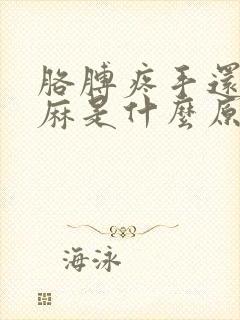 胳膊疼手還
麻是什麼原
海泳